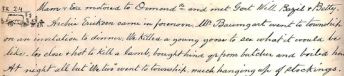 Mavis & Eva motored to Ormond th and met Gert Will Hazel & Betty.
Archie Erickson came in forenoon. Mr Baumgart went to township
on an invitation to dinner. We killed a young goose to see what it would be
like. too close & hot to kill a lamb, bought hind qr from butcher and boiled ham
At night all but We two went to township. much hanging up of stockings.